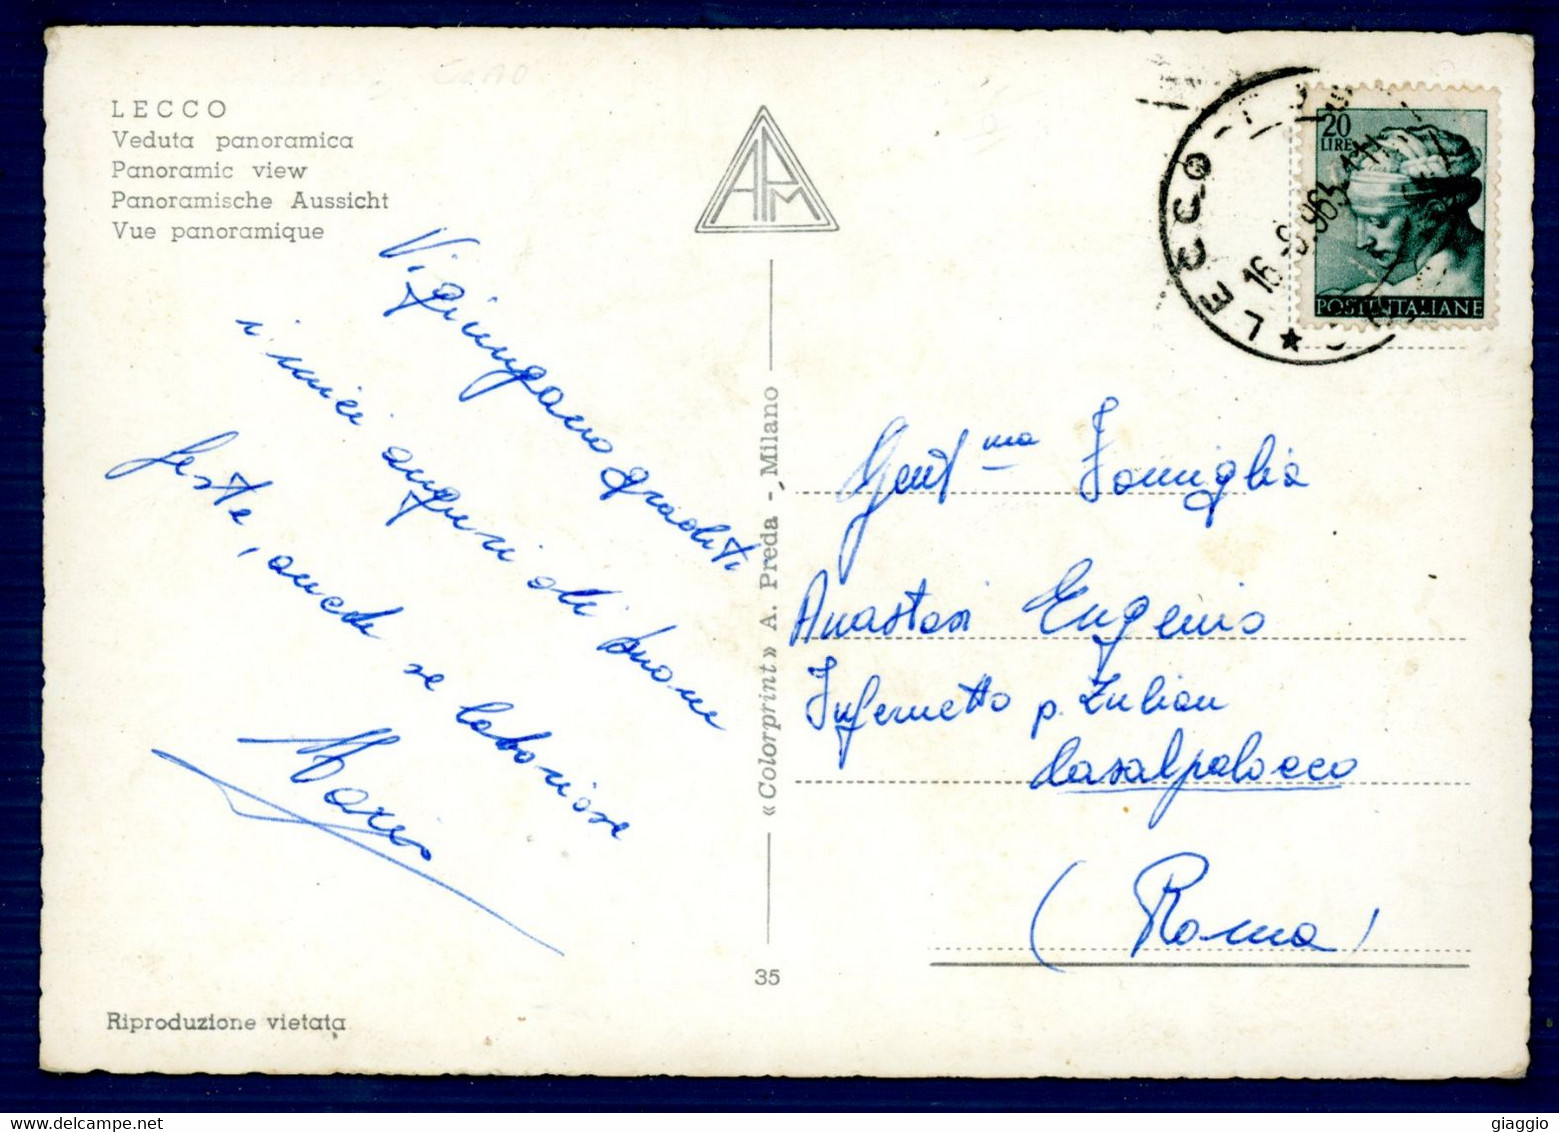 LECCO
Veduta panoramica
Panoramic view
Panoramische Aussicht
Vue panoramique
APM
Vi giungano graditi
i miei auguri di buone
feste, anche se laboriose
Mario
«Colorprint» A. Preda - Milano
35
Riproduzione vietata
LECCO
16.9.963
20
LIRE
POSTE ITALIANE
Gent ma Famiglia
Anastasi Eugenio
Infernetto p. Zulian
Casalpalocco
(Roma)
giaggio